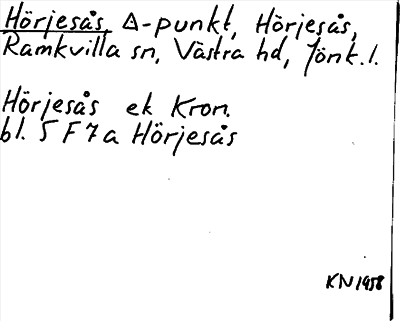 Hörjesås, Δ-punkt, Hörjesås,
Ramkvilla sn, Västra hd, Jönk. l.
Hörjesås ek Kron.
bl. 5 F 7 a Hörjesås
KN 1958